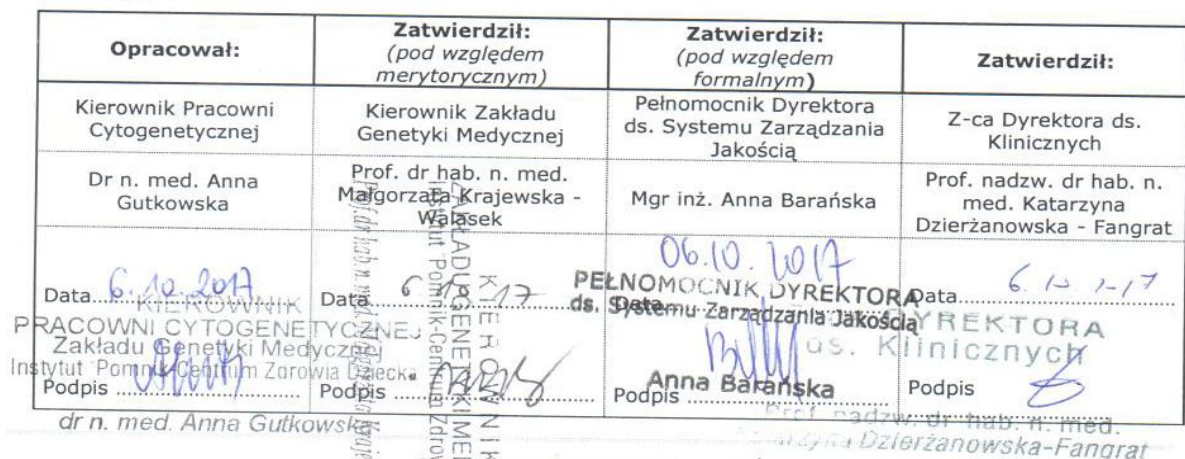 Opracował:
Zatwierdził:
(pod względem
merytorycznym)
Zatwierdził:
(pod względem
formalnym)
Zatwierdził:
Kierownik Pracowni
Cytogenetycznej
Kierownik Zakładu
Genetyki Medycznej
Pełnomocnik Dyrektora
ds. Systemu Zarządzania
Jakością
Z-ca Dyrektora ds.
Klinicznych
Dr n. med. Anna
Gutkowska
Prof. dr hab. n. med.
Małgorzata Krajewska -
Walasek
Mgr inż. Anna Barańska
Prof. nadzw. dr hab. n.
med. Katarzyna
Dzierżanowska - Fangrat
Data 6.10.2017
KIEROWNIK
PRACOWNI CYTOGENETYCZNEJ
Zakładu Genetyki Medycznej
Instytut "Pomnik-Centrum Zdrowia Dziecka
Podpis
dr n. med. Anna Gutkowska
Data 6 10 17
Podpis
KIEROWNIK
ZAKŁADU GENETYKI
Instytut "Pomnik-Centrum
Prof. dr hab. n. med.
06.10.2017
PEŁNOMOCNIK DYREKTORA
Data
ds. Systemu Zarządzania Jakością
Anna Barańska
Podpis
Data 6.10.17
DYREKTORA
ds. Klinicznych
Podpis
Prof. nadzw. dr hab. n. med.
Katarzyna Dzierżanowska-Fangrat